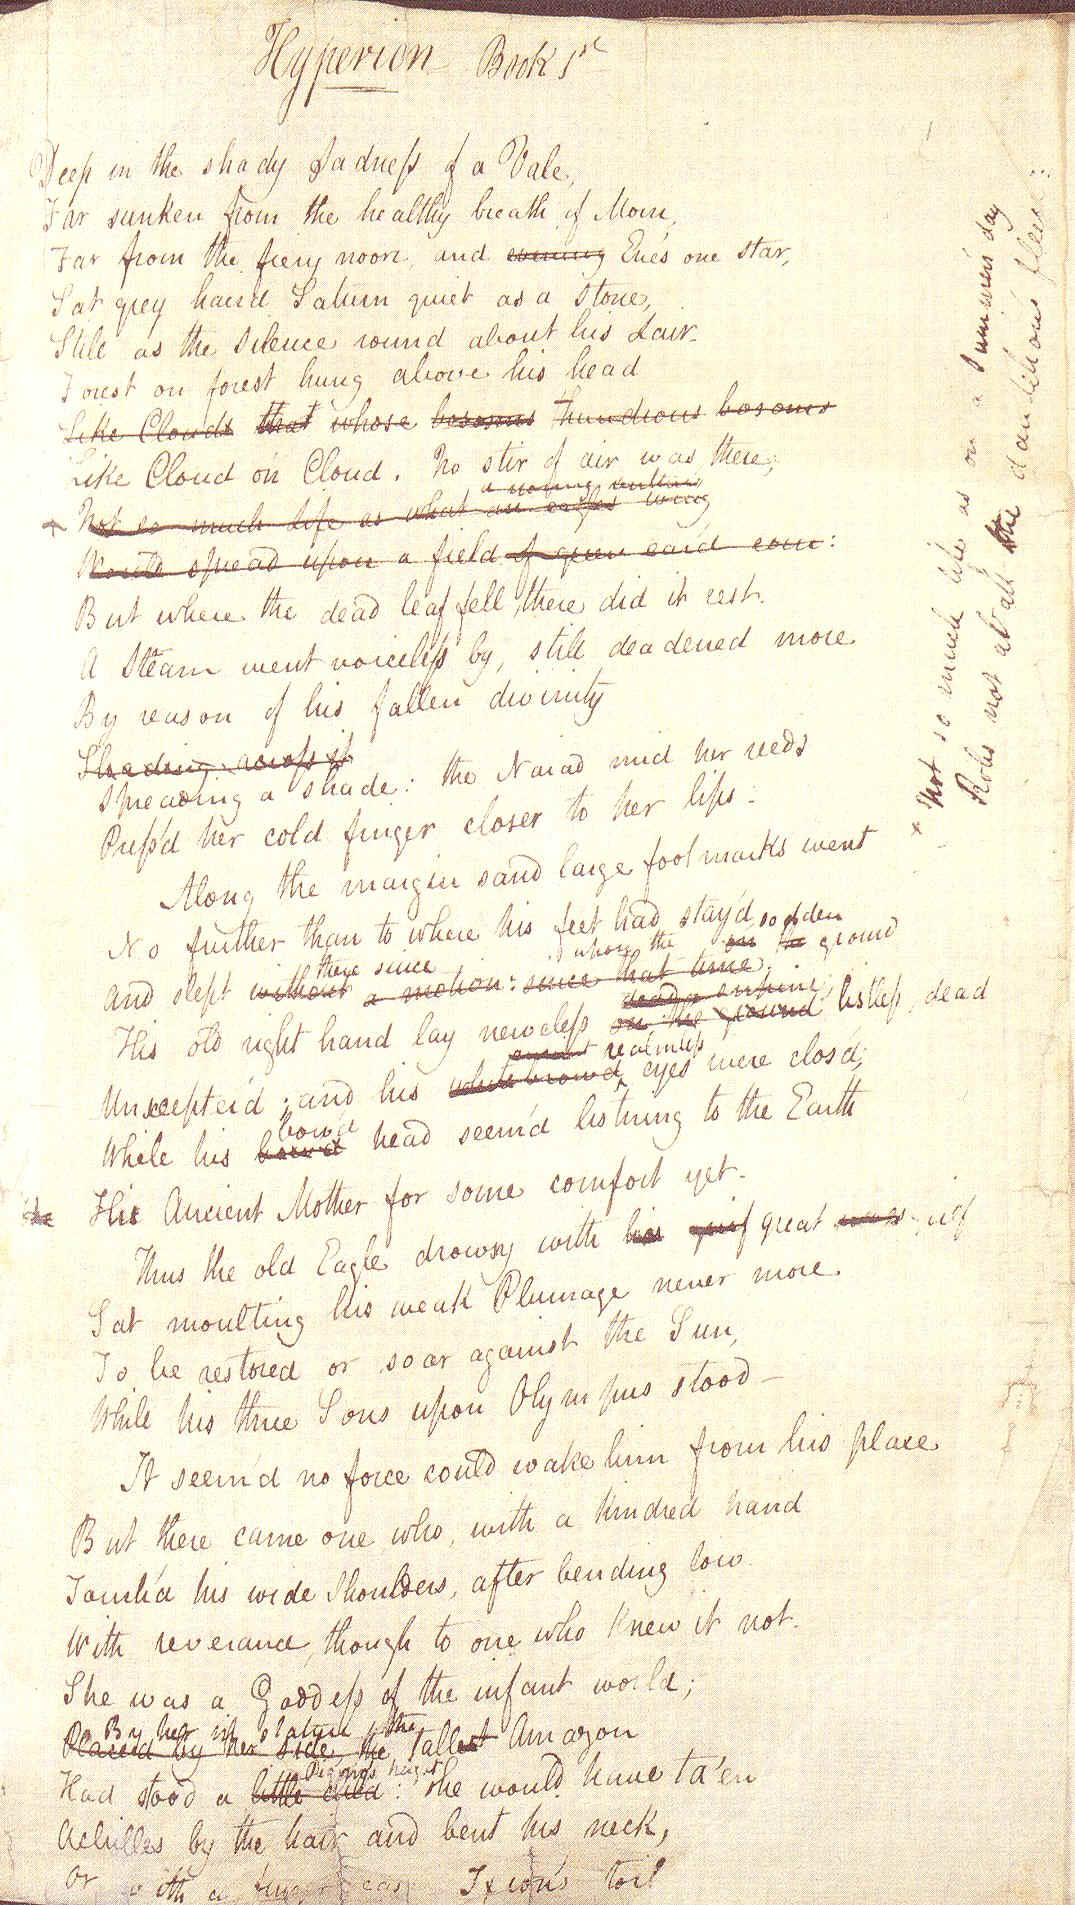 Hyperion Book 1st
Deep in the shady Sadness of a Vale,
Far sunken from the healthy breath of Morn,
Far from the fiery noon, and evening Eve's one star,
Sat grey hair'd Saturn quiet as a stone,
Still as the Silence round about his Lair.
Forest on forest hung above his head
Like Clouds that whose bosoms thundrous bosoms
Like Cloud on Cloud. No stir of air was there,
a young vulture's
x Not so much life as what an eagles wing
Would spread upon a field of green ear'd corn:
But where the dead leaf fell, there did it rest.
A Stream went voiceless by, still deadened more
By reason of his fallen divinity
Shading across it
Spreading a shade: the Naiad mid her reeds
Press'd her cold finger closer to her lips.
Along the margin sand large footmarks went
No further than to where his feet had stay'd
there since where the on the sodden ground
And slept without a motion: since that time
dead supine
His old right hand lay nerveless on the ground listless, dead
realmless
Unscepter'd; and his white brow'd eyes were clos'd,
bow'd
While his head seem'd listning to the Earth
His Ancient Mother for some comfort yet.
Thus the old Eagle drowsy with his grief great grief
Sat moulting his weak Plumage never more
To be restored or soar against the Sun,
While his three Sons upon Olympus stood—
It seem'd no force could wake him from his place
But there came one who, with a kindred hand
Touch'd his wide Shoulders, after bending low
With reverance, though to one who knew it not.
She was a Goddess of the infant world;
By her in stature the
Placed by her side, the tallest Amazon
Pigmy's height
Had stood a little child: she would have ta'en
Achilles by the hair and bent his neck,
or with a finger Ixion's toil
x Not so much life as on a summer's day
Robs not at all the dandelion's fleece: